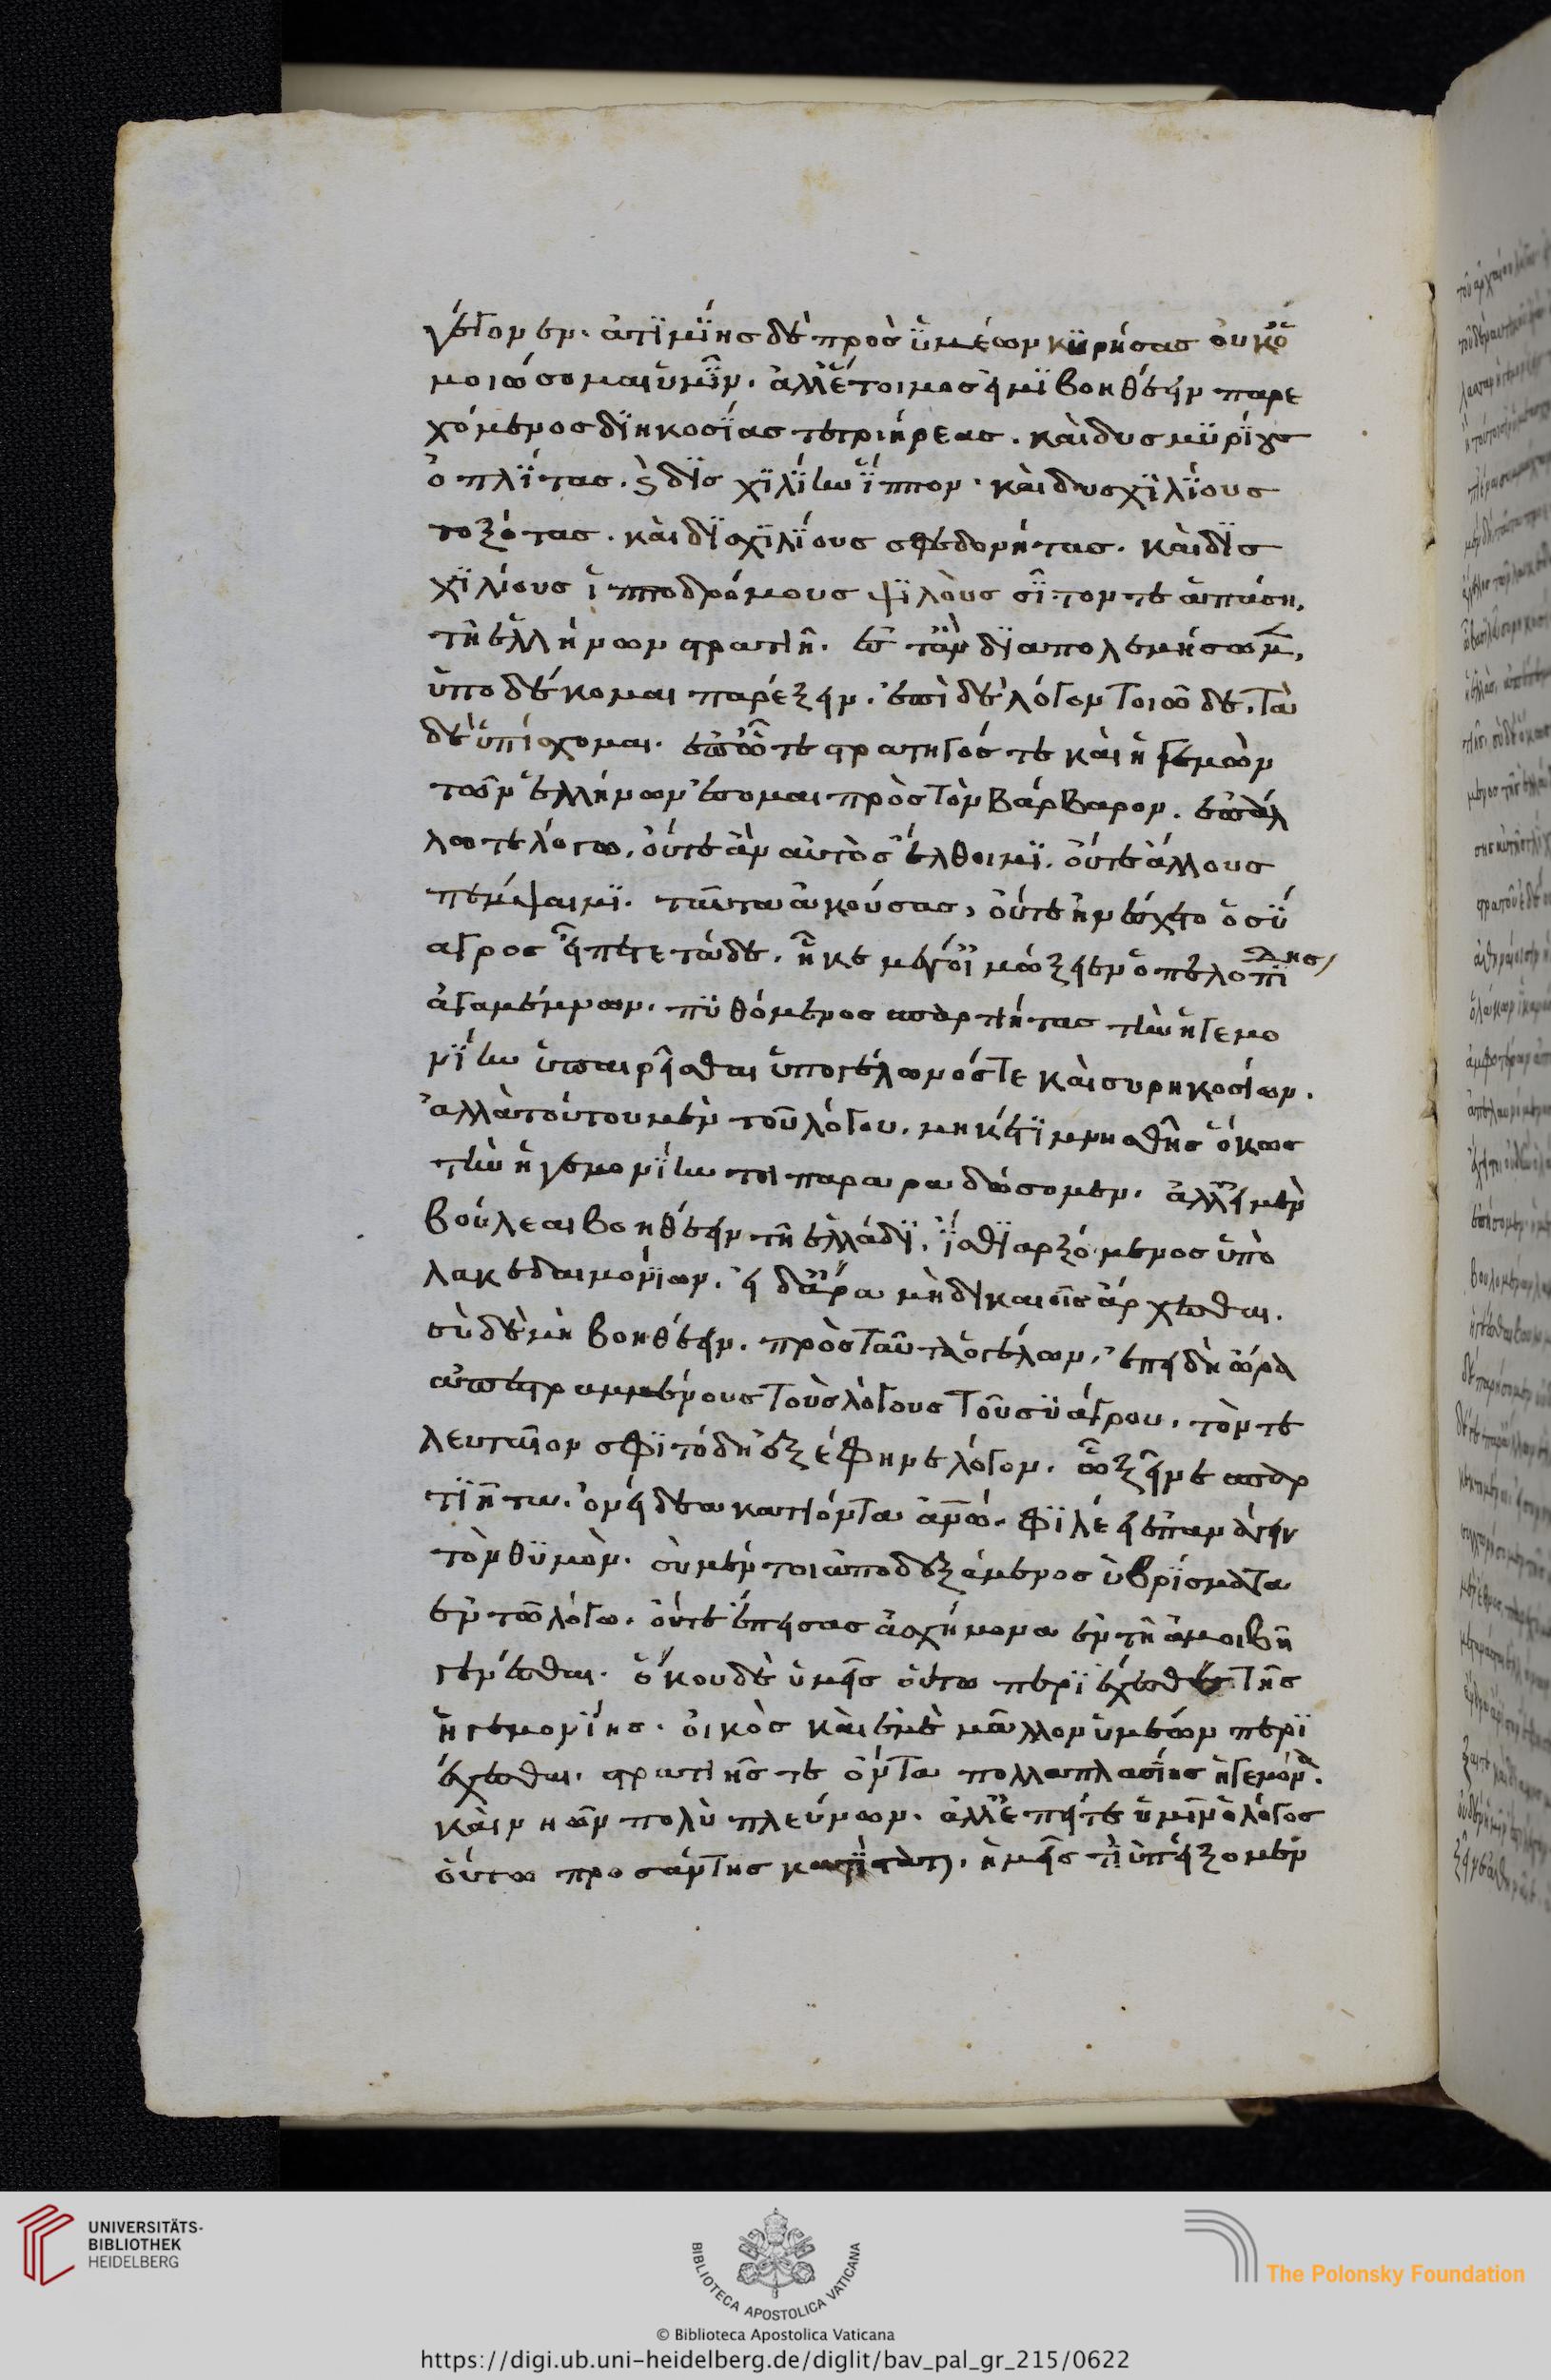 γέγονεν. ἀτιμίης δὲ πρὸς ὑμέων κυρήσας οὐκ ὁ
μοιώσομαι ὑμῖν. ἀλλ' ἕτοιμος εἰμὶ βοηθέειν παρε
χόμενος διηκοσίας τε τριήρεας. καὶ δυσμυρίους
ὁπλίτας. καὶ δὶς χιλίην ἵππον. καὶ δυσχιλίους
τοξότας. καὶ δισχιλίους σφεδονήτας. καὶ δὶς
χιλίους ἱπποδρόμους ψιλοὺς σῖτον τε ἁπάση,
τῆ ἑλλήνων στρατιῆ. ἔστ' ἂν διαπολεμήσωμεν,
ὑποδέκομαι παρέξειν. ἐπὶ δὲ λόγον τοιῶδε, τὰ
δὲ ὑπίσχομαι. ἐπ' ὧ τε στρατηγός τε καὶ ἡγεμὼν
τῶν ἑλλήνων ἔσομαι πρὸς τὸν βάρβαρον. ἐπ' ἄλ
λω τε λόγω. οὔτε ἂν αὐτὸς ἔλθοιμι. οὔτε ἄλλους
πέμψαιμι. ταῦτα ἀκούσας, οὔτε ἠνέσχετο ὁ σύ
αγρος εἶπέ τε τάδε. ἦ κε μέγ' οἰμώξειεν ὁ πελοπίδης,
ἀγαμέμνων. πυθόμενος σπαρτιήτας τὴν ἡγεμο
νίην ὑπαιρεῖσθαι ὑπὸ γέλωνός τε καὶ συρηκοσίων.
ἀλλὰ τούτου μὲν τοῦ λόγου. μηκέτι μνησθῆς ὅκως
τὴν ἡγεμονίην τοι παραραδώσομεν. ἀλλ' εἰ μὲν
βούλεαι βοηθέειν τῆ ἑλλάδι. ἴσθι ἀρξόμενος ὑπὸ
λακεδαιμονίων. εἰ δ' ἄρα μὴ δικαιοῖς ἄρχεσθαι.
σὺ δὲ μὴ βοηθέειν. πρὸς ταῦτα ὁ γέλων, ἐπειδὴ ὥρα
ἀπεστραμμένους τοὺς λόγους τοῦ συάγρου. τὸν τε
λευταῖον σφι τόδη ἐξέφηνε λόγον. ὦ ξεῖνε σπαρ
τιῆτα. ὀνείδεα κατιόντα ἀνω. φιλέει ἐπανάγειν
τὸν θυμὸν. σὺ μέν τοι ἀποδεξάμενος ὑβρίσματα
ἐν τῶ λόγω. οὔτε ἔπεισας ἀσχήμονα ἐν τῆ ἀμοιβῆ
γενέσθαι. ὅκου δὲ ὑμεῖς οὕτω περιέχεσθε τῆς
ἡγεμονίης. οἰκὸς καὶ ἐμὲ μᾶλλον ὑμέων περι
έχεσθαι. στρατιῆς τε ὄντα πολλαπλασίης ἡγεμόνα.
καὶ νηῶν πολὺ πλεύνων. ἀλλ' ἐπείτε ὑμῖν ὁ λόγος
οὕτω προσάντης κατίσταται, ἡμεῖς τὶ ὑπείξομεν
UNIVERSITÄTS-
BIBLIOTHEK
HEIDELBERG
BIBLIOTECA APOSTOLICA VATICANA
The Polonsky Foundation
© Biblioteca Apostolica Vaticana
https://digi.ub.uni-heidelberg.de/diglit/bav_pal_gr_215/0622